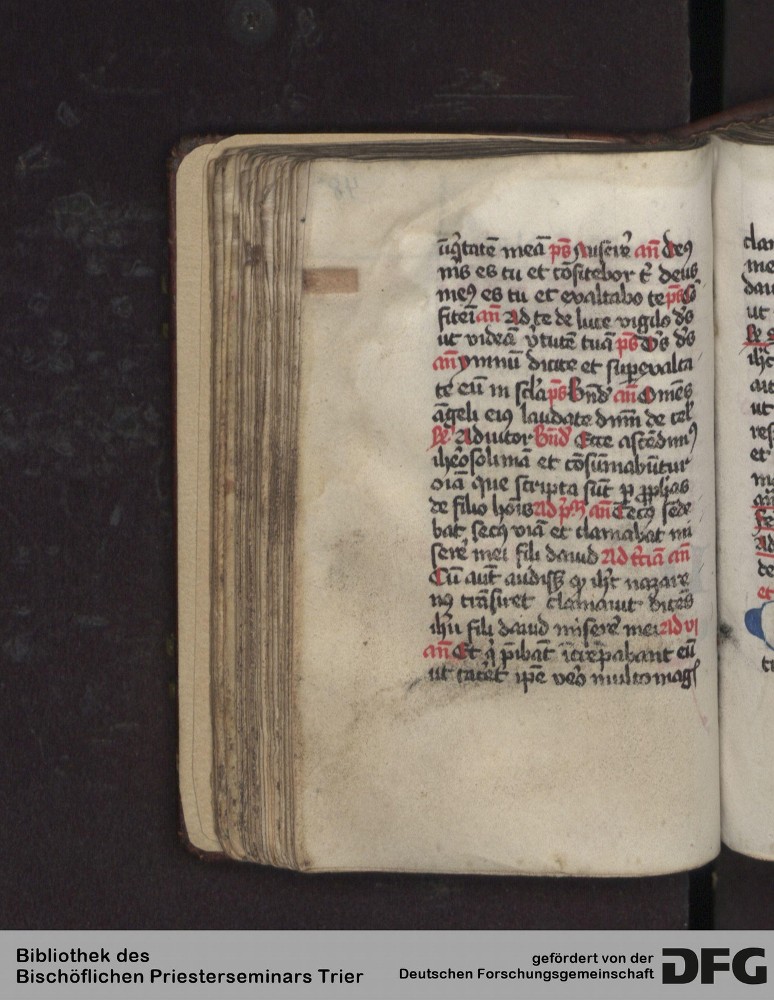 48
iiqͥtatē meā pͫs Miserē añ Deꝰ
mͨs es tu et cōfitebor tͥ deus
meꝰ es tu et exaltabo te pͫs Cō
fitei añ Ad te de luce vigilo dͨs
ut videā vͥtutē tuā pͫs Dͨs dͨs
añ ymnū dicite et suꝑexalta
te eū in scͨla pͫs Bn̄d añ Omēs
āgeli eiꝰ laudate dnm̄ de cel
Adiutor Bn̄d Ecce ascēdimꝰ
ihrosolimā et cōsūmabūtur
oīa que scripta sūt ꝑ ꝓphās
de filio hoīs ad pͥm añ Cecꝰ sede
bat secꝰ viā et clamabat mi
serē mei fili dauid ad tͨciā añ
Cū aūt audiss ꝙ ihͨs nazare
nꝰ trāsiret clamauit dicēs
ihū fili dauid miserē mei ad vi
añ Et qͥ p̄ibāt īcrepabant eū
ut tacēt ip̄e vͦo multo magͨ
clam
me
dau
ut
ihͨc
ait
ut
res
et
ma
añ
Ad
de
et
Bibliothek des
Bischöflichen Priesterseminars Trier
gefördert von der
Deutschen Forschungsgemeinschaft
DFG